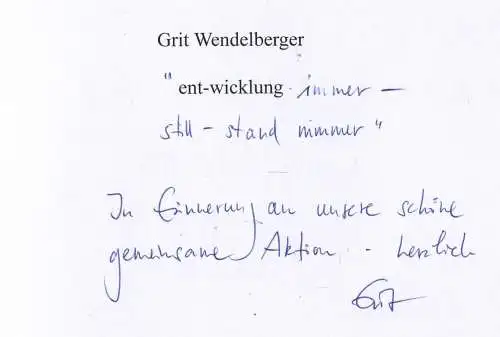 Grit Wendelberger
"ent-wicklung immer –
still – stand nimmer"
In Erinnerung an unsere schöne
gemeinsame Aktion. – herzlich
Grit